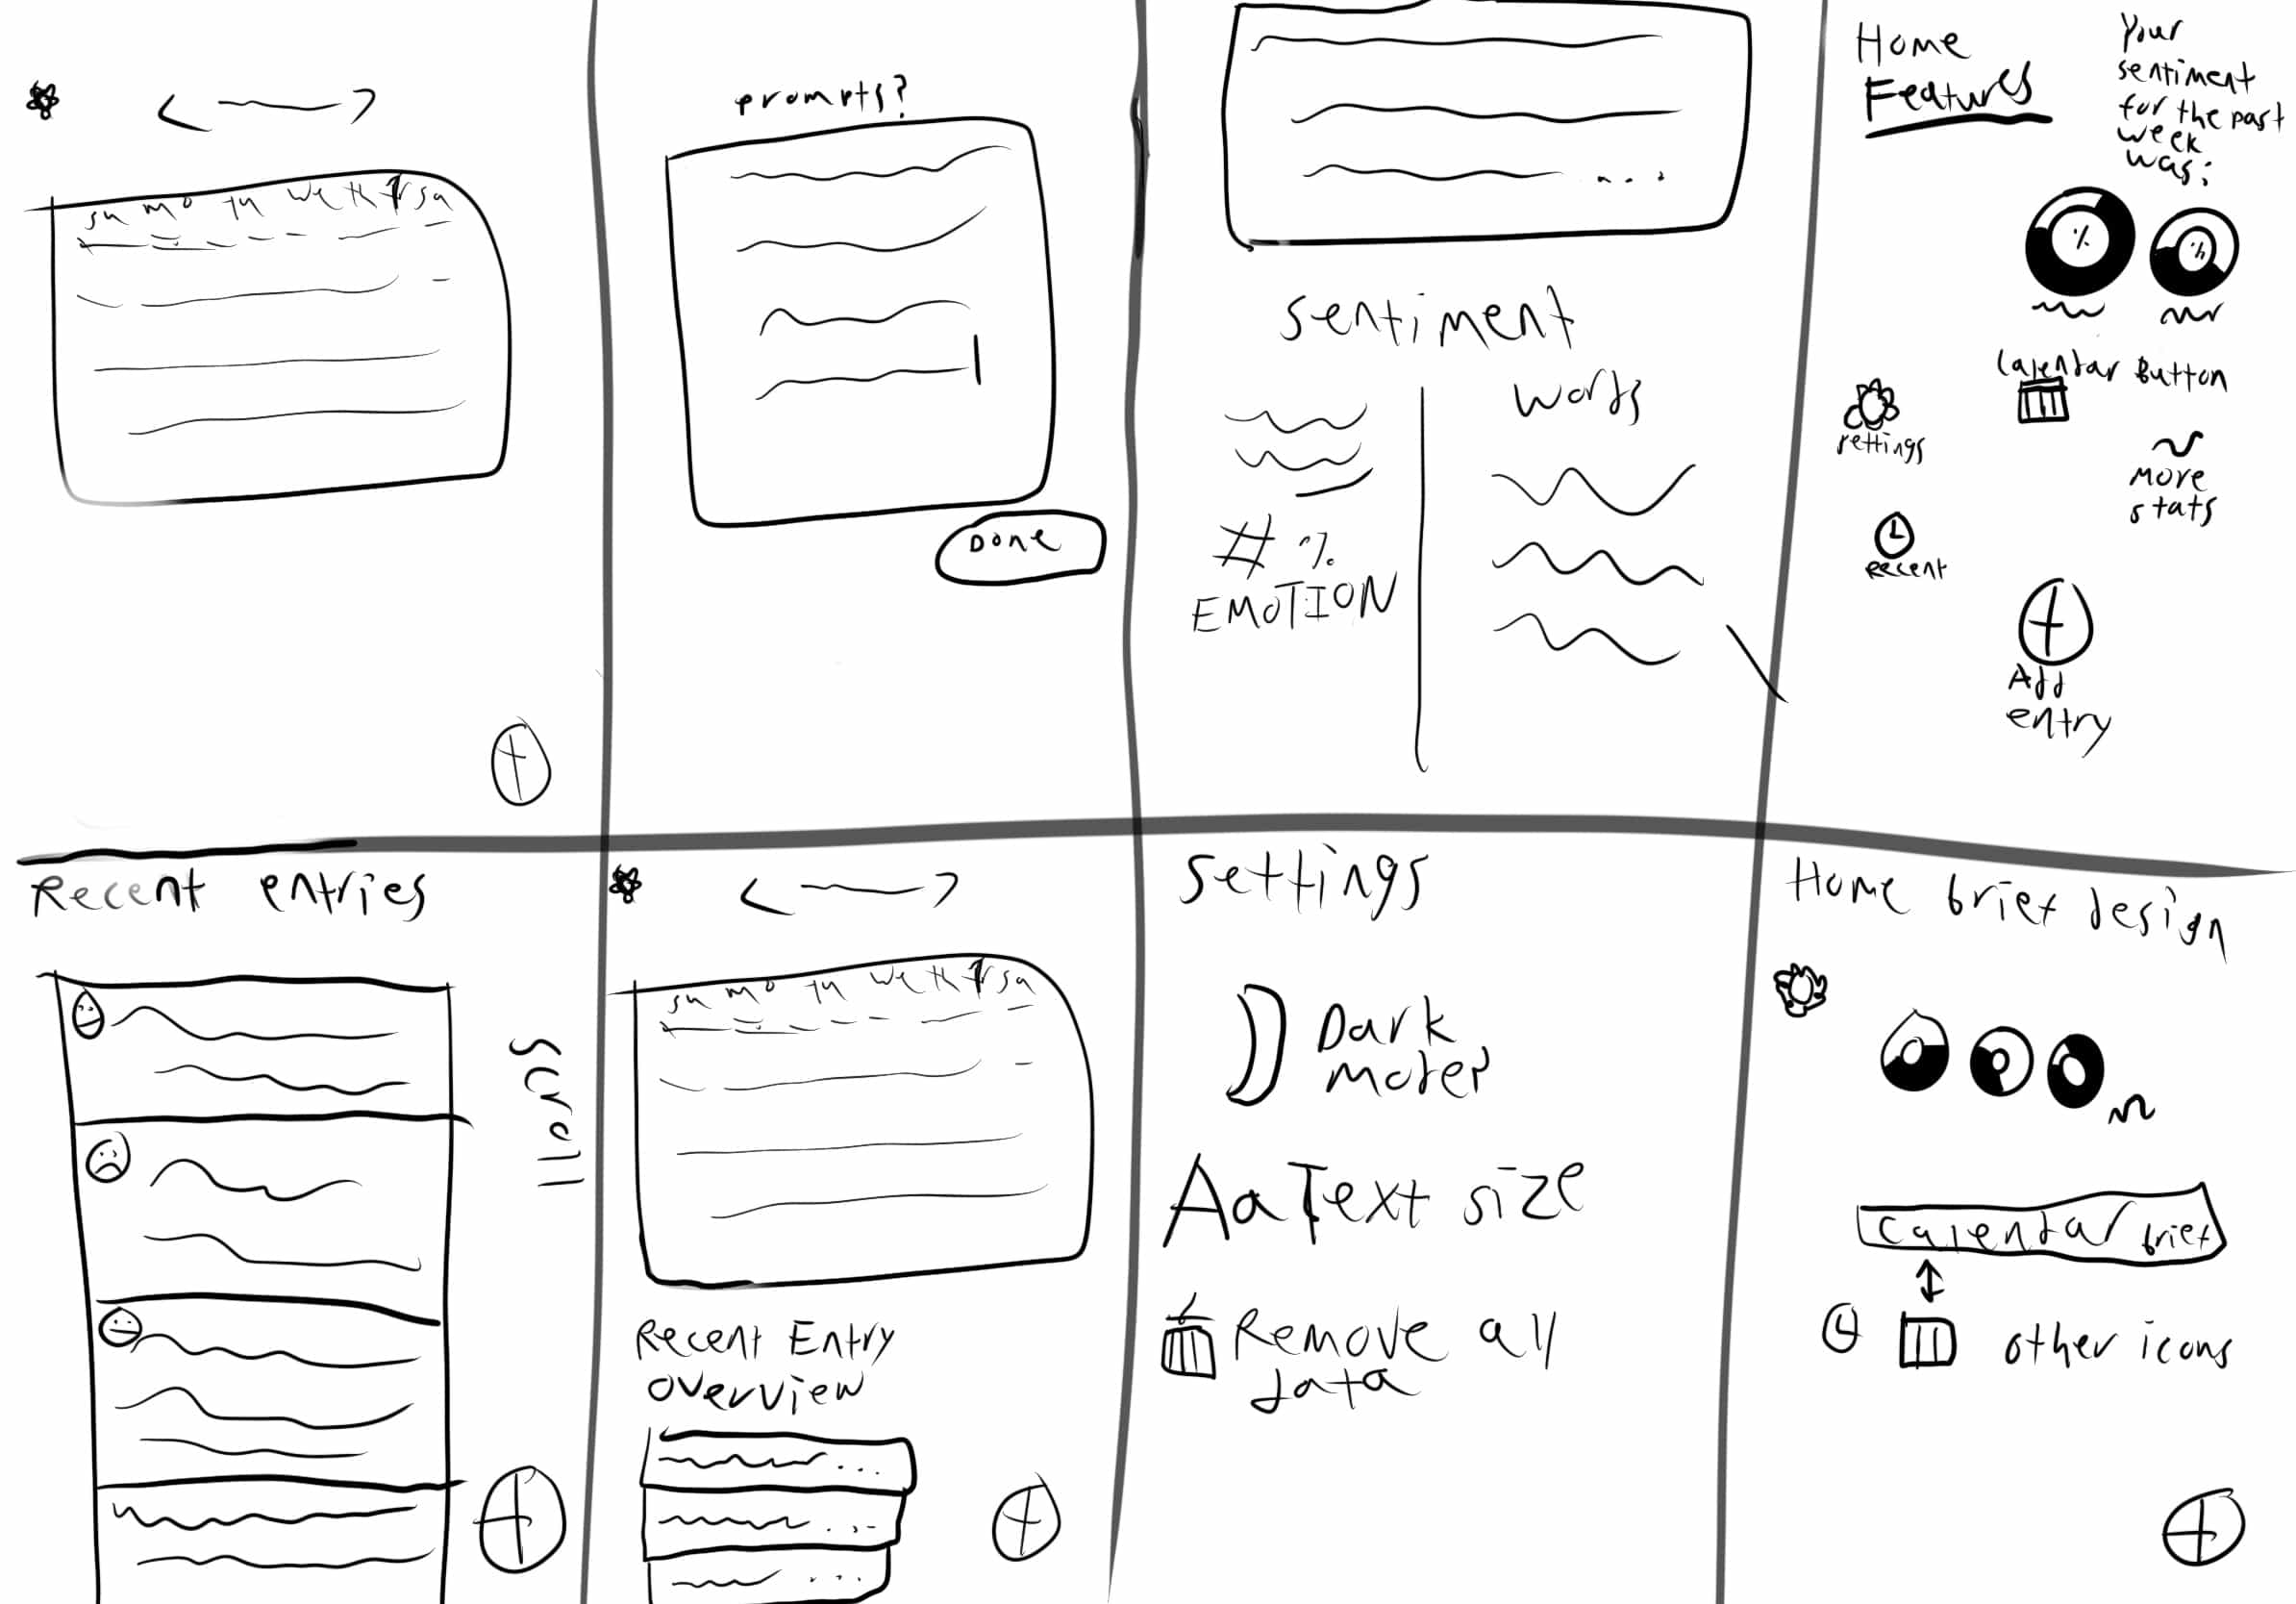 su mo tu we th fr sa
prompts?
Done
sentiment
words
# %
EMOTION
Home
Features
Your
sentiment
for the past
week
was:
%
%
Calendar Button
settings
More
stats
Recent
Add
entry
Recent entries
scroll
su mo tu we th fr sa
Recent Entry
overview
settings
Dark
Aa Text size
Remove all
data
Home brief design
calendar brief
other icons